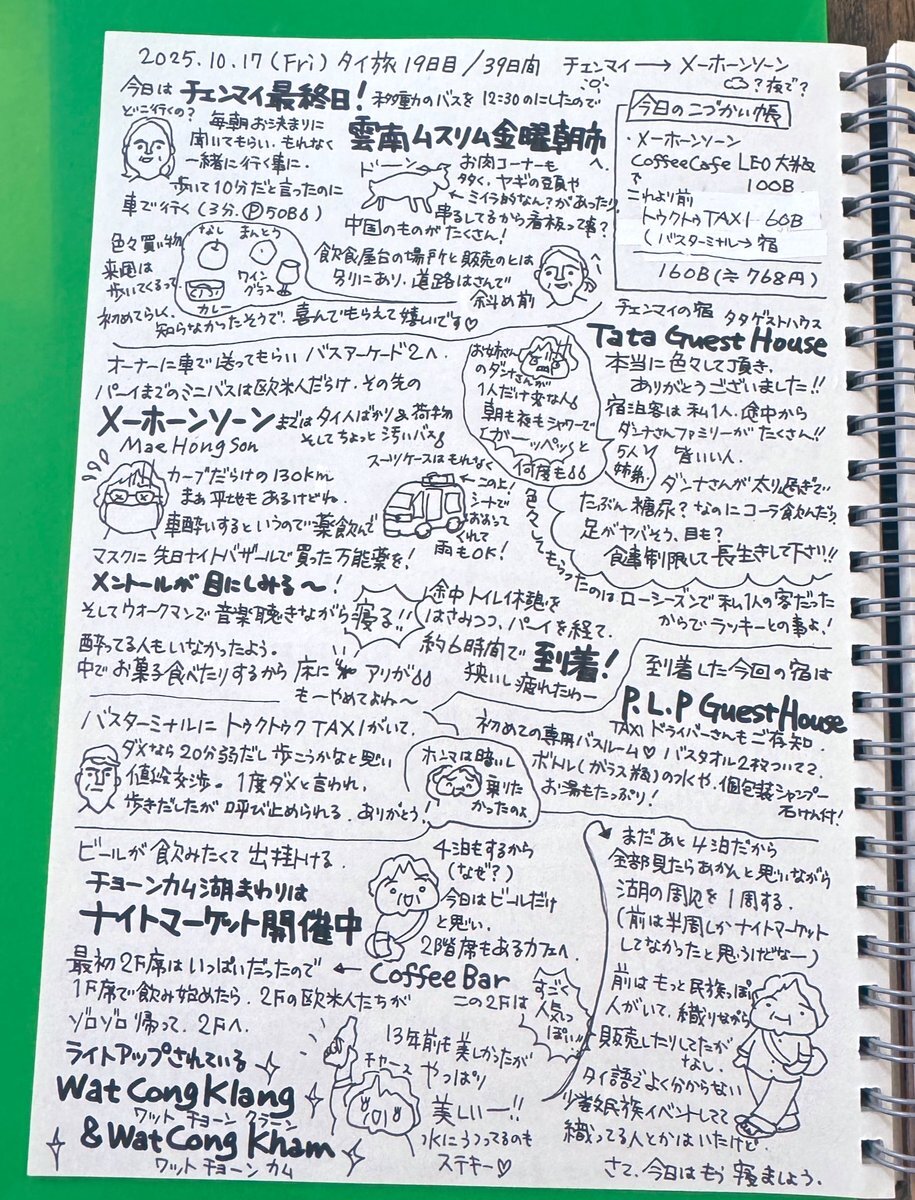 2025.10.17(Fri) タイ旅19日目/39日間 チェンマイ→メーホーンソーン
?夜で?
今日は チェンマイ最終日! 移動のバスを12:30のにしたので
どこ行くの?
毎朝お決まりに
聞いてもらい、もれなく
一緒に行く事に。
歩いて10分だと言ったのに
車で行く(3分。Ⓟ50B)
雲南ムスリム金曜朝市へ。
ドーン
お肉コーナーも
多く、ヤギの頭や
←ミイラ的なん?があったり
串るしてるから看板って事?
中国のものがたくさん!
色々買い物
なし まんとう
ワイン
グラス
カレー
来週は
歩いてくるって
飲食屋台の場所と販売のとは
別にあり、道路はさんで
斜め前
初めてらしく、
知らなかったそうで、喜んでもらえて嬉しいです♡
今日のこづかい帳
・メーホーンソーン
Coffee Cafe LEO大瓶
100B
これより前
トゥクトゥTAXI 60B
(バスターミナル→宿
160B(≒768円)
オーナーに車で送ってもらい バスアーケード2へ。
パーイまでのミニバスは欧米人だらけ。その先の
メーホーンソーンまではタイ人ばかり&荷物
Mae Hong Son
そしてちょっと汚いバス
スーツケースはもれなく
←この上!
シートで
おおって
くれて
雨もOK!
カーブだらけの130km
まあ平地もあるけどね。
車酔いするというので薬飲んで
マスクに先日ナイトバザールで買った万能薬を!
メントールが目にしみる〜!
そしてウオークマンで音楽聴きながら寝る!!
酔ってる人もいなかったよう。
中でお菓子食べたりするから 床に アリが
も〜やめてよね〜
途中トイレ休憩を
はさみつつ、パーイを経て、
約6時間で 到着!
狭いし疲れたわー
お姉さん
のダンナさんが
1人だけ変な人
朝も夜もシャワーで
「がーッペッ」と
何度も
チェンマイの宿 タタゲストハウス
Tata Guest House
本当に色々して頂き、
ありがとうございました!!
宿泊客は私1人、途中から
ダンナさんファミリーがたくさん!!
5人
姉弟。
皆いい人。
ダンナさんが太り過ぎで…
たぶん糖尿?なのにコーラ飲んだり
足がヤバそう、目も?
食事制限して長生きして下さい!!
色々してもらったのはローシーズンで私1人の客だった
からでラッキーとの事よ!
到着した今回の宿は
P.L.P Guest House
TAXIドライバーさんもご存知。
初めての専用バスルーム♡ バスタオル2枚ついてて、
ボトル(ガラス瓶)の水や、個包装シャンプー
石けん付!
お湯もたっぷり!
バスターミナルに トゥクトゥクTAXIがいて、
ダメなら20分弱だし歩こうかなと思い
値段交渉。1度ダメと言われ、
歩きだしたが呼び止められる。ありがとう!
ホンマは暗いし
乗りた
かったのよ
ビールが飲みたくて出掛ける。
チョーンカム湖まわりは
ナイトマーケット開催中
4泊もするから
(なぜ?)
今日はビールだけ
と思い、
2階席もあるカフェへ。
最初2F席はいっぱいだったので ← Coffee Bar
1F席で飲み始めたら、2Fの欧米人たちが
ゾロゾロ帰って、2Fへ。
この2Fは
すごく
人気っ
ぽい!!
ライトアップされている
Wat Cong Klang
ワット チョーン クラーン
& Wat Cong Kham
ワット チョーン カム
チャース
13年前も美しかったが
やっぱり
美しいー!!
水にうつってるのも
ステキー♡
まだあと4泊だから
全部見たらあかんと思いながら
湖の周辺を1周する。
(前は半周しかナイトマーケット
してなかったと思うけどなー)
前はもっと民族っぽい
人がいて、織りながら
販売したりしてたが
なし。
タイ語でよく分からない
少数民族イベントしてて
織ってる人とかはいたけど
さて、今日はもう寝ましょう。